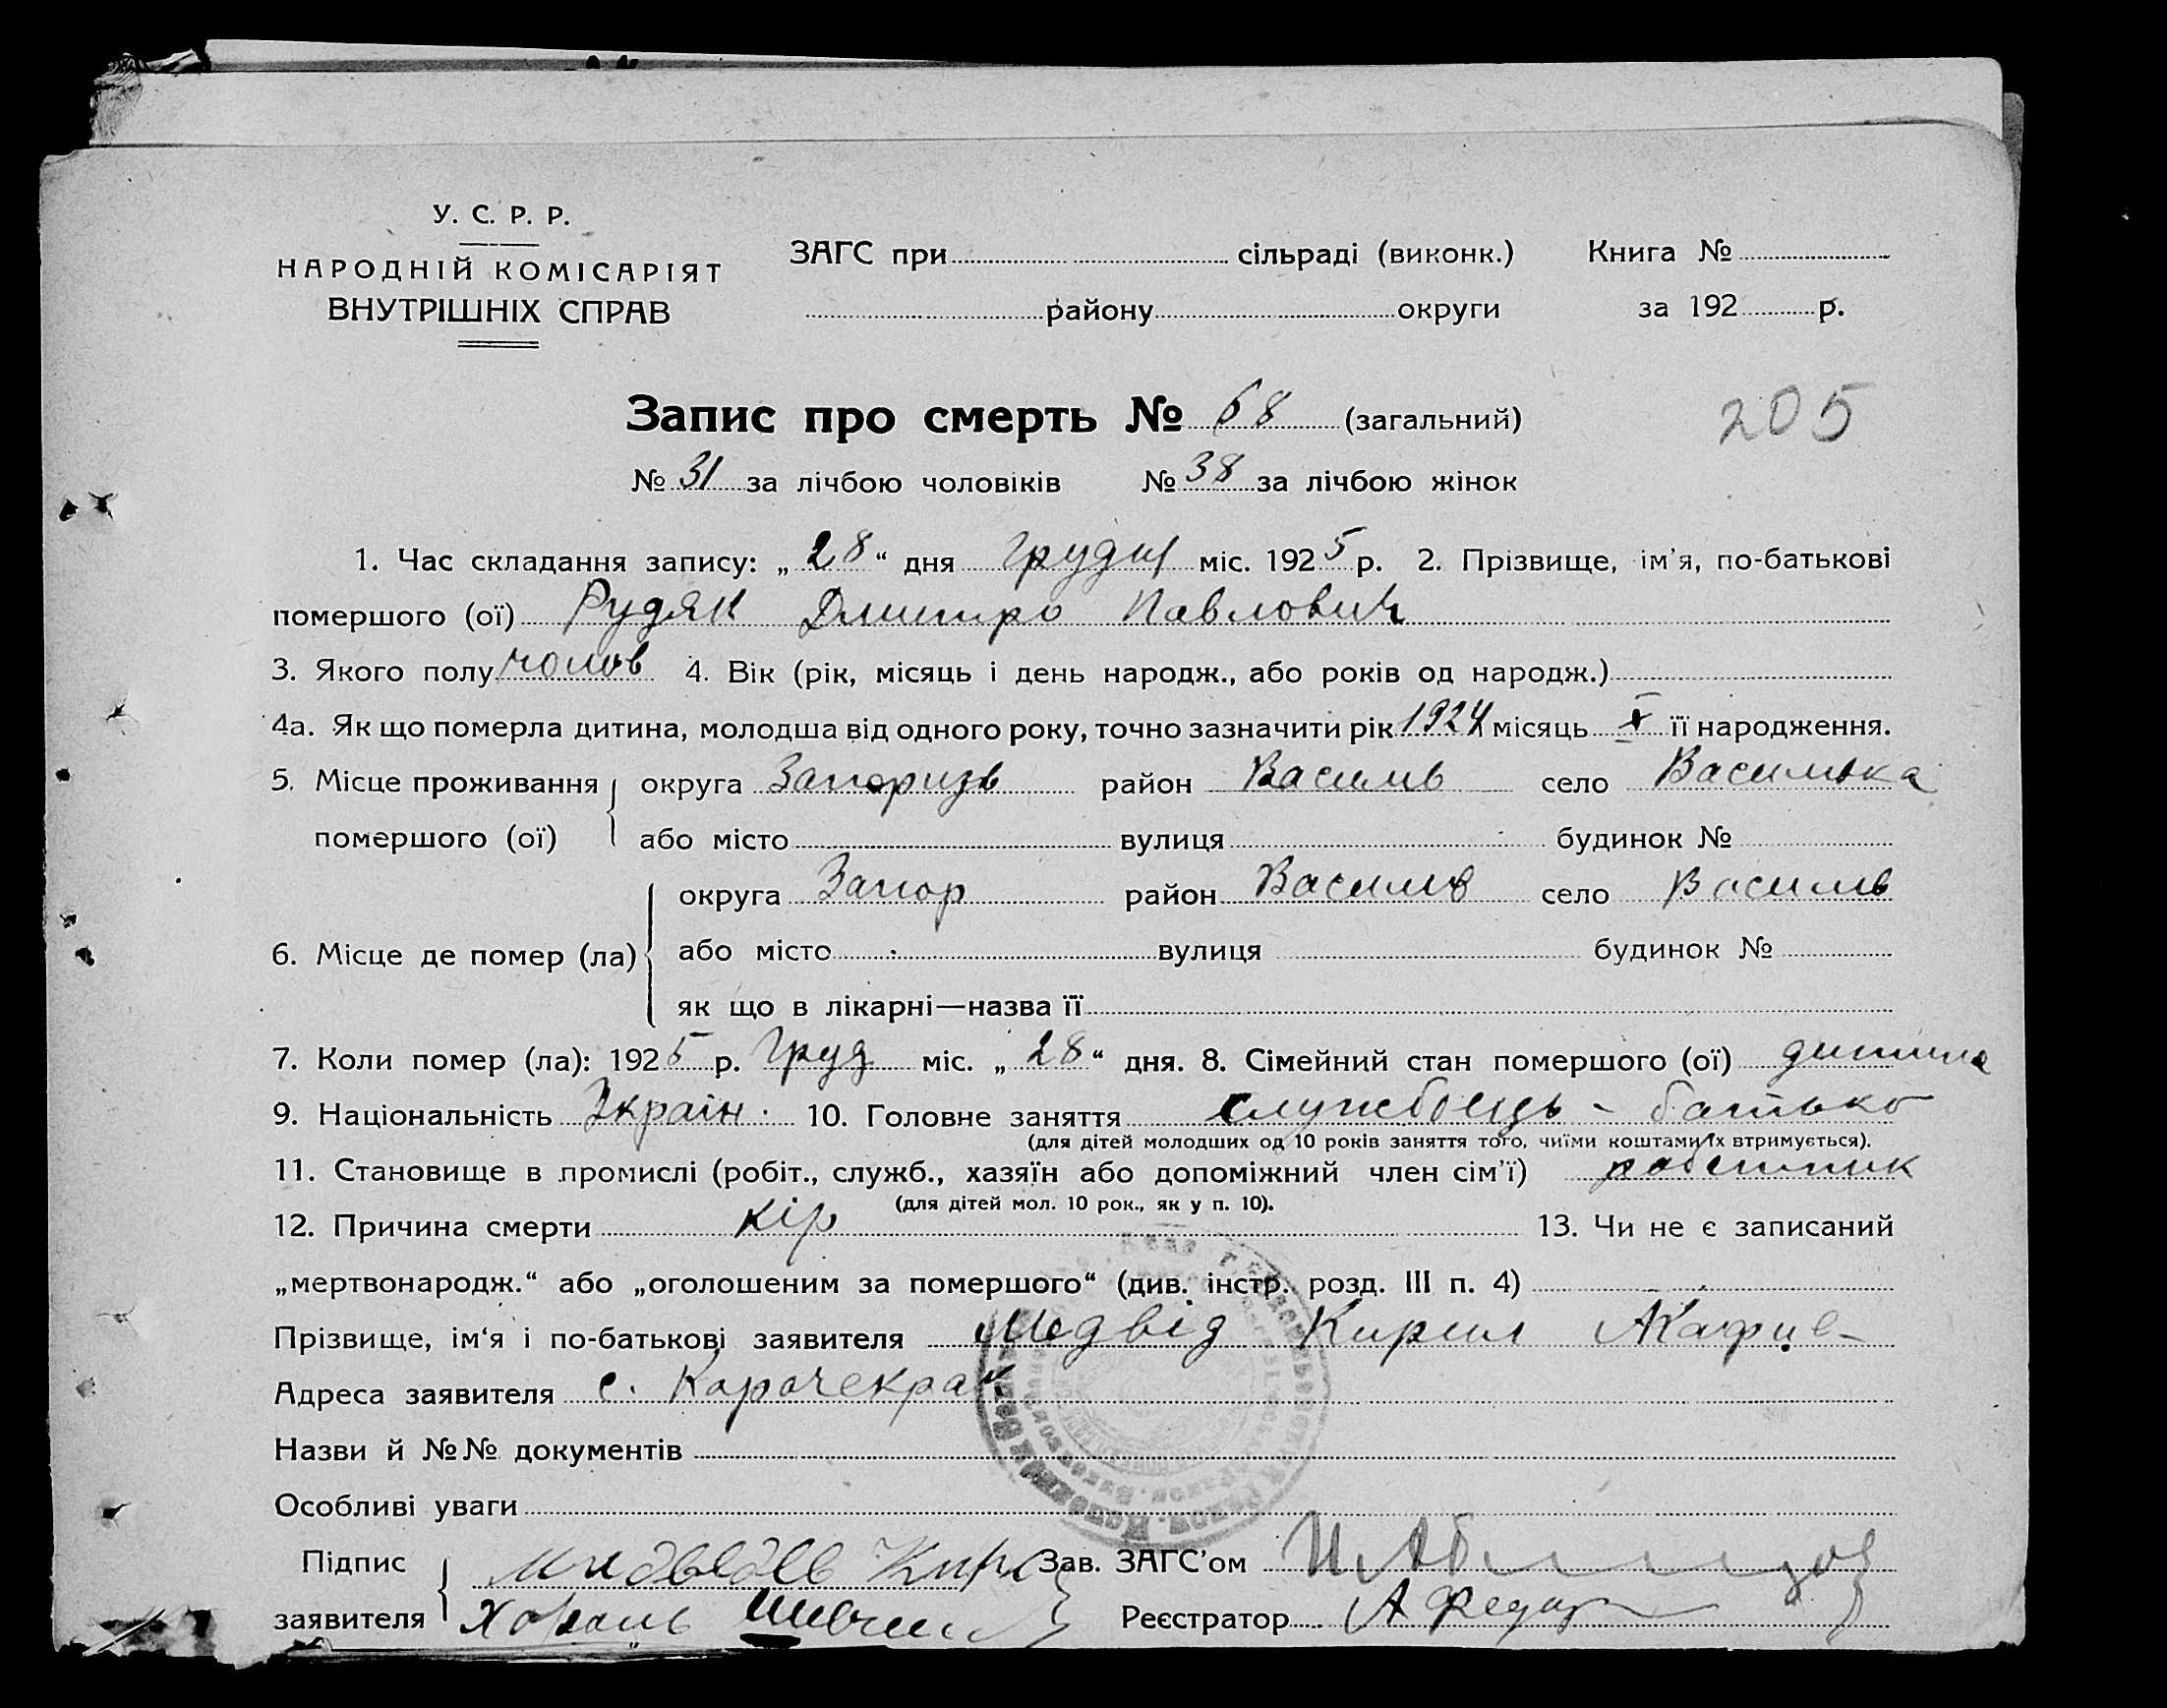 У. С. Р. Р.
НАРОДНІЙ КОМІСАРІЯТ
ВНУТРІШНІХ СПРАВ
ЗАГС при сільраді (виконк.) Книга №
району округи за 192 р.
Запис про смерть № 68 (загальний)
205
№ 31 за лічбою чоловіків № 38 за лічбою жінок
1. Час складання запису: „ 28 “ дня грудня міс. 1925 р. 2. Прізвище, ім'я, по-батькові
помершого (ої) Рудяк Дмитро Павлович
3. Якого полу чолов 4. Вік (рік, місяць і день народж., або років од народж.)
4а. Як що померла дитина, молодша від одного року, точно зазначити рік 1924 місяць X її народження.
5. Місце проживання округа Запоризь район Василь село Василька
помершого (ої) або місто вулиця будинок №
округа Запор район Василь село Василь
6. Місце де помер (ла) або місто вулиця будинок №
як що в лікарні—назва її
7. Коли помер (ла): 1925 р. Груд міс. „ 28 “ дня. 8. Сімейний стан помершого (ої) дитина
9. Національність Україн. 10. Головне заняття службоець - батько
(для дітей молодших од 10 років заняття того, чиїми коштами їх втримується).
11. Становище в промислі (робіт., служб., хазяїн або допоміжний член сім'ї) робитник
(для дітей мол. 10 рок., як у п. 10).
12. Причина смерти кір 13. Чи не є записаний
„мертвонародж.“ або „оголошеним за помершого“ (див. інстр. розд. III п. 4)
Прізвище, ім‘я і по-батькові заявителя Медвід Кирил
Адреса заявителя с. Карачекрак
Назви й №№ документів
Особливі уваги
Підпис Зав. ЗАГС'ом
заявителя Реєстратор А Федор